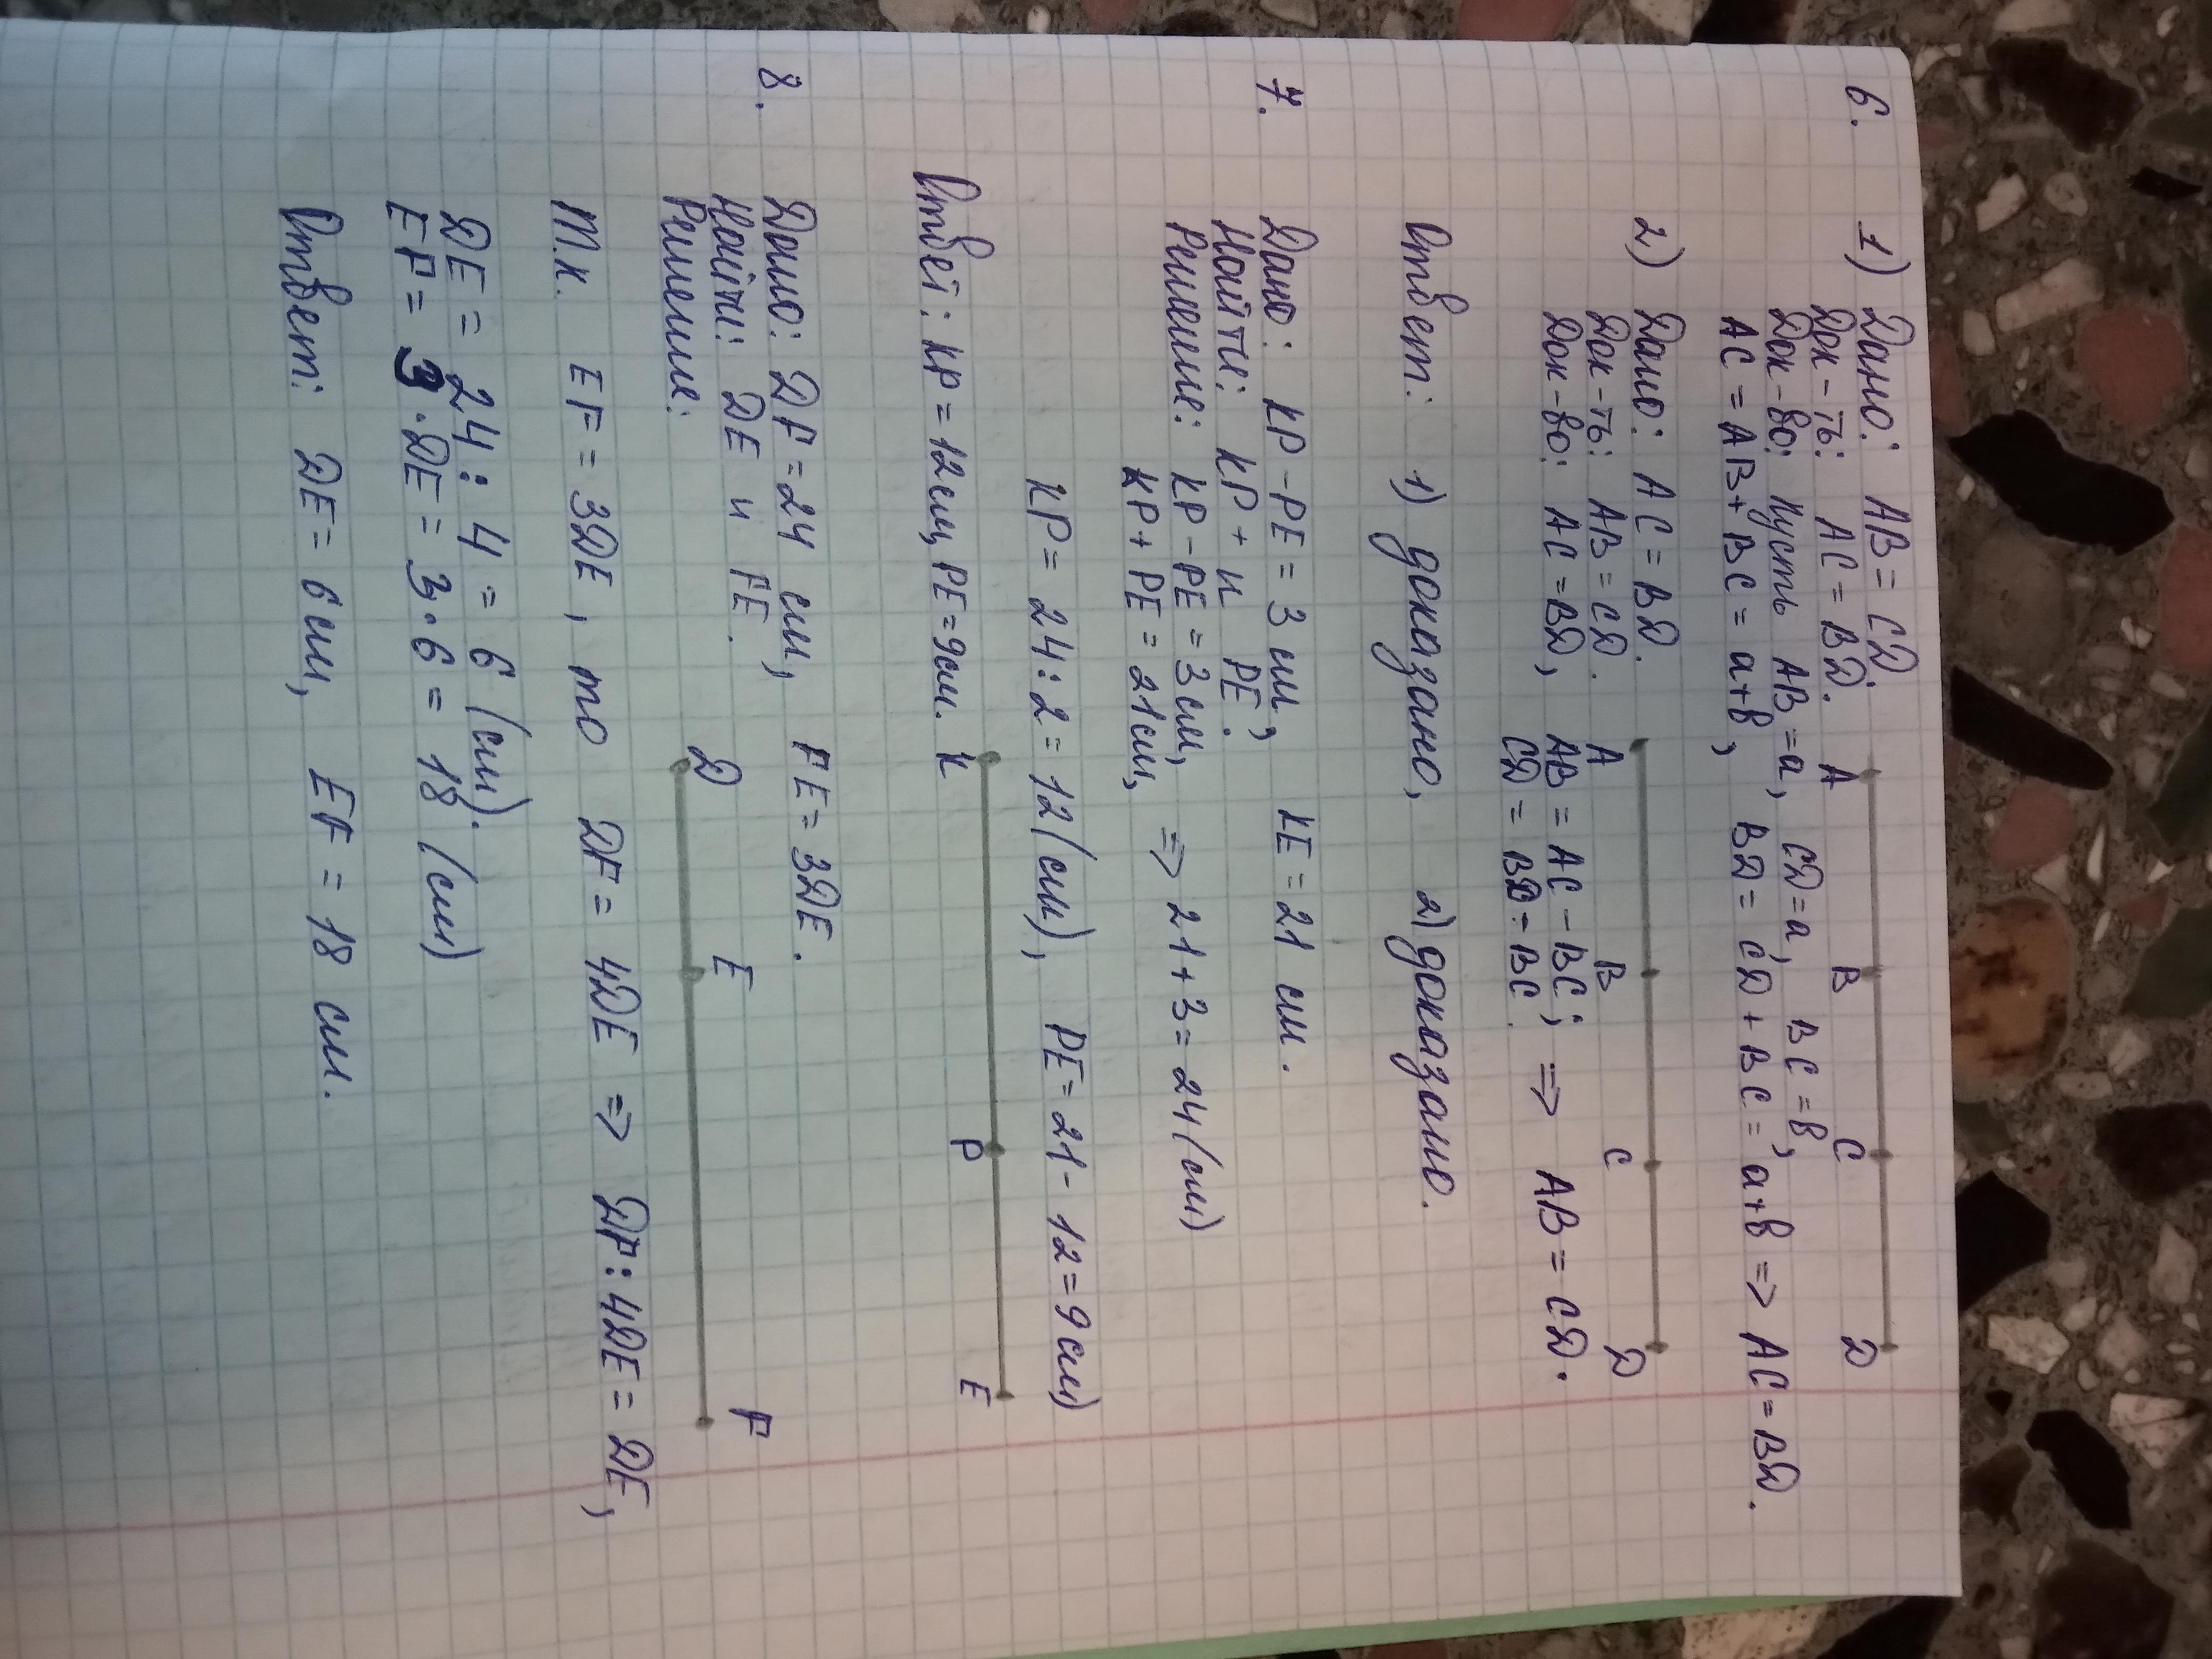 6. 1) Дано: AB = CD.
Док-ть: AC = BD.
A B C D
Док-во: Пусть AB = a, CD = a, BC = b,
AC = AB + BC = a+b, BD = CD + BC = a+b => AC = BD.
2) Дано: AC = BD.
Док-ть: AB = CD.
A B C D
Док-во: AC = BD, AB = AC - BC; => AB = CD.
CD = BD - BC.
Ответ: 1) доказано, 2) доказано.
7. Дано: KP - PE = 3 см, KE = 21 см.
Найти: KP + и PE.
Решение: KP - PE = 3 см,
KP + PE = 21 см, => 21 + 3 = 24 (см)
KP = 24 : 2 = 12 (см), PE = 21 - 12 = 9 см)
K P E
Ответ: KP = 12 см, PE = 9 см.
8. Дано: DF = 24 см, FE = 3DE.
Найти: DE и FE.
Решение:
D E F
Т.к. EF = 3DE, то DF = 4DE => DF : 4DE = DE,
DE = 24 : 4 = 6 (см).
EF = 3 · DE = 3 · 6 = 18 (см)
Ответ: DE = 6 см, EF = 18 см.